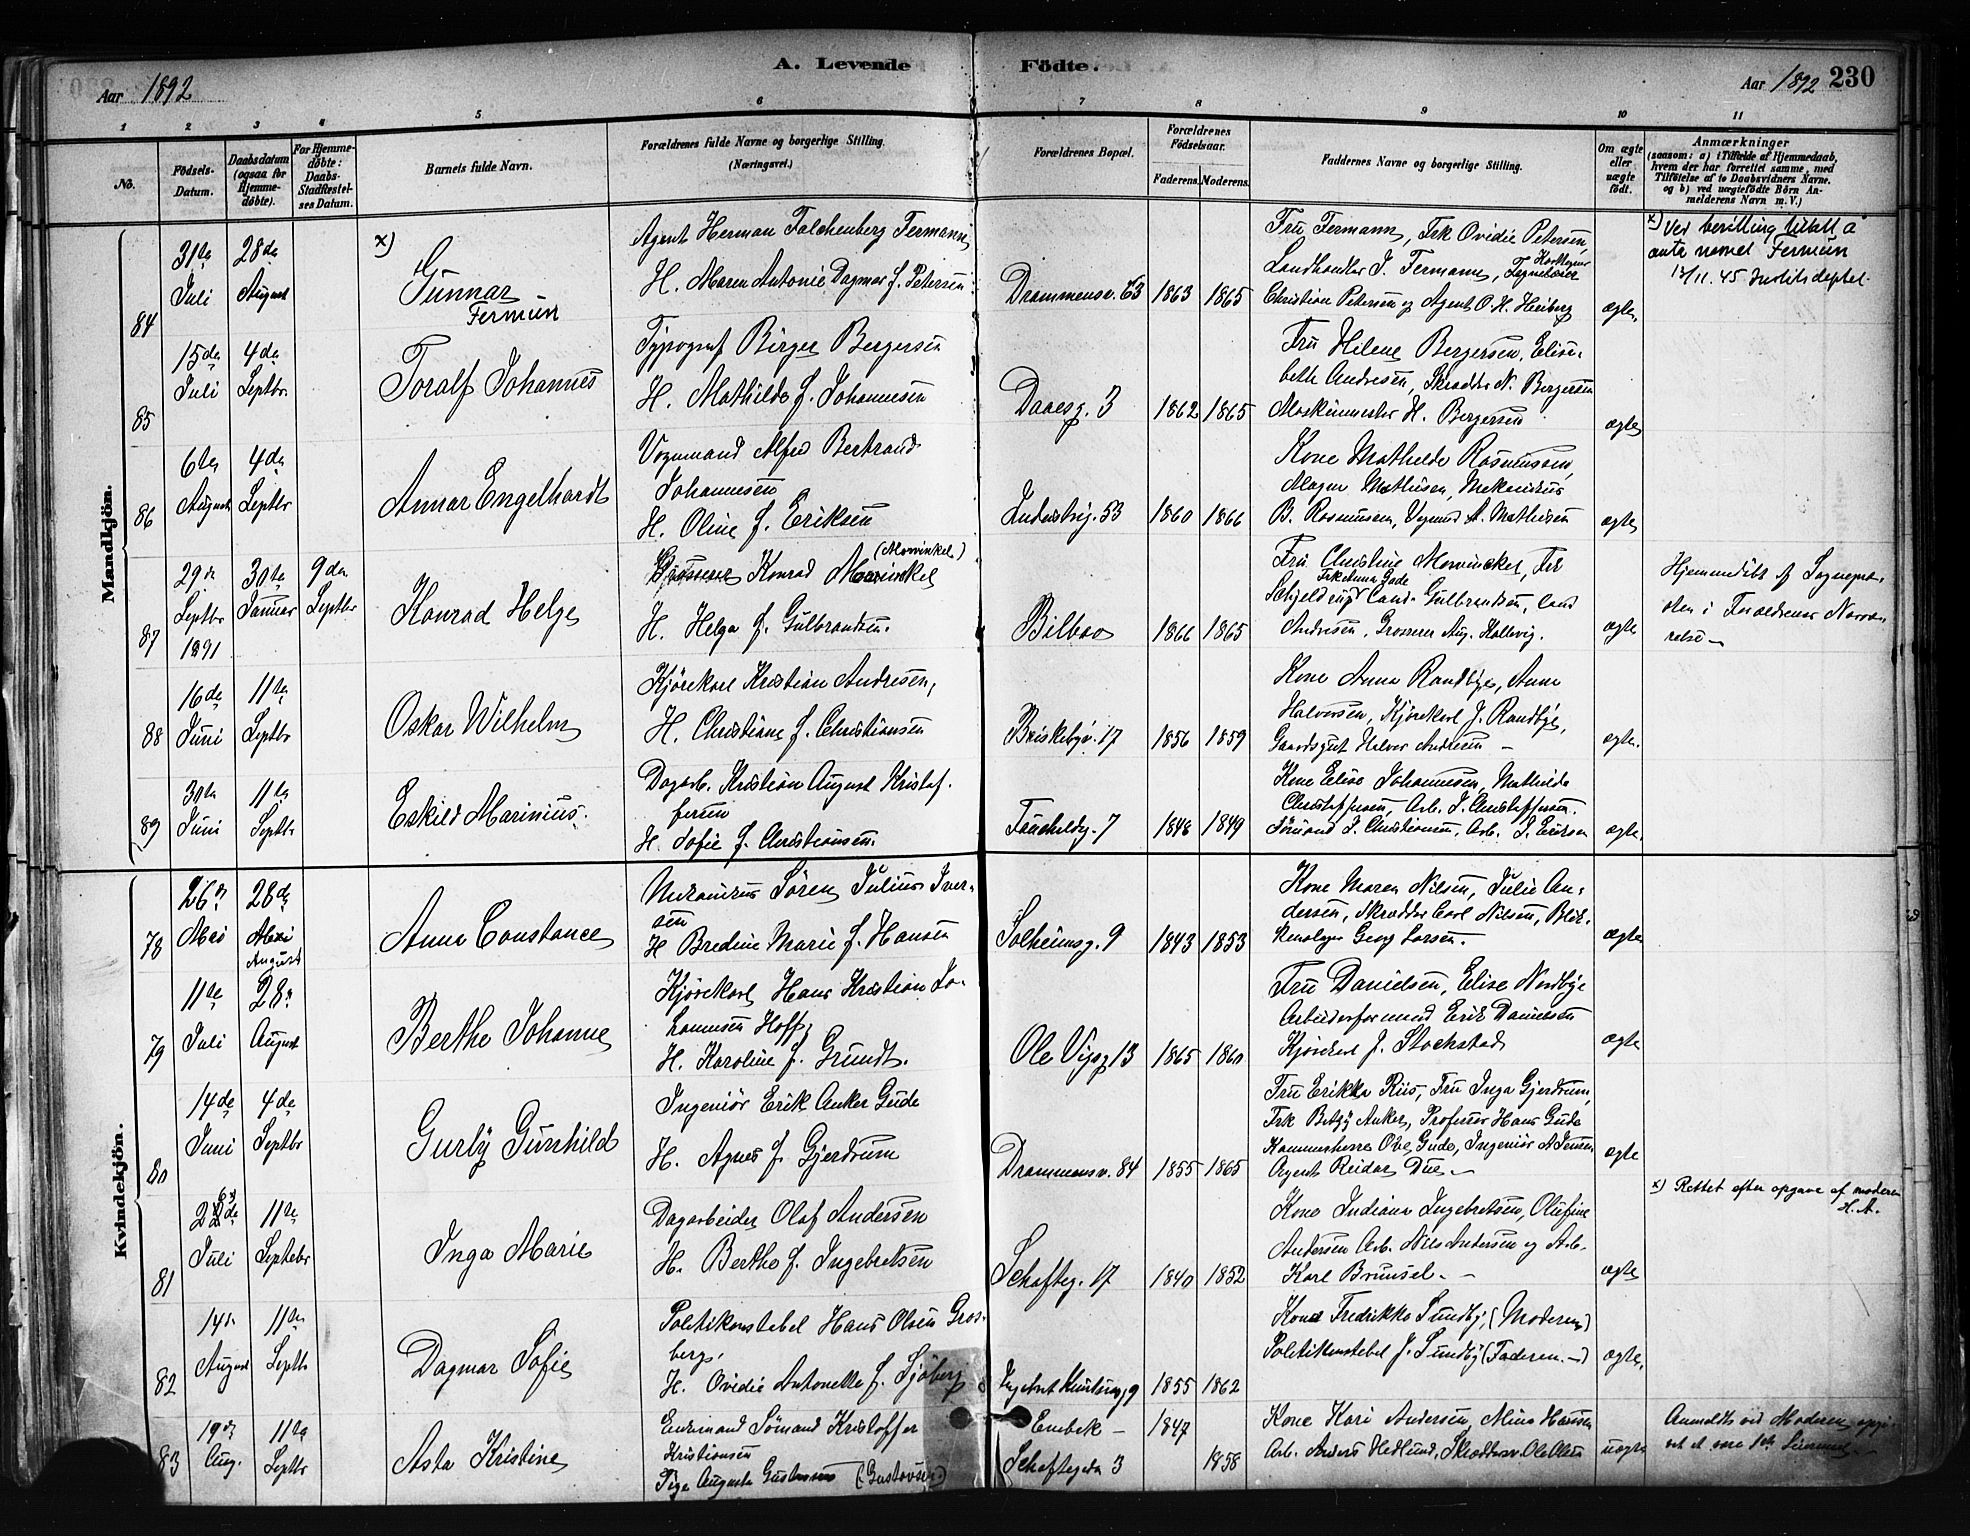 A. Levende Födte.
Aar 1892
Aar 1892 230
1 2 3 4 5 6 7 8 9 10 11
No.
Födsels-Datum.
Daabsdatum (ogsaa for Hjemme-döbte).
For Hjemme-döbte: Daabs-Stadfæstel-ses Datum.
Barnets fulde Navn.
Forældrenes fulde Navne og borgerlige Stilling.
(Næringsvei.)
Forældrenes Bopæl.
Forældrenes Födselsaar.
Faderens. Moderens.
Faddernes Navne og borgerlige Stilling.
Om ægte eller uægte födt.
Anmærkninger
(saasom: a) i Tilfælde af Hjemmedaab,
hvem der har forrettet samme, med
Tilföielse af to Daabsvidners Navne,
og b) ved uægtefödte Börn An-
melderens Navn m. V.)
Mandkjön.
84
31te Juli
28de August
x) Gunnar
Fermün
Agent Herman Falchenberg Fermann
H. Maren Antonie Dagmar f. Petersen
Drammensv. 63
1863 1865
Fru Fermann, Frk Ovidie Petersen,
Landhandler J. Fermann,
Christian Petersen og Agent O. H. Heiberg
ægte.
x) Ved bevilling tillatt å
anta navnet Fermün
12/11. 45 Justitsdeptet.
85
15de Juli
4de Septbr.
Toralf Johannes
Typograf Birger Bergersen
H. Mathilde f. Johannesen
Daaesg. 3
1862 1865
Fru Hilene Bergersen, Elise-
beth Andresen, Skrædder N. Bergersen
Maskinmester H. Bergersen
ægte
86
6te August
4de Septbr
Annar Engelhardt
Vognmand Alfred Bertrand
Johannesen
H. Oline f. Eriksen
Industrig. 53
1860 1866
Kone Mathilde Rasmussen,
Magna Mathisen, Mekanikus
B. Rasmussen, Vognmd A. Mathisen
ægte
87
29de Septbr 1891
30te Januar
9de Septbr
Konrad Helge
(Mowinkel)
Grosserer Konrad Mowinkel
H. Helga f. Gulbrandsen.
Bilbao
1866 1865
Fru Christine Mowinckel, Frk
Frk Anna Gade
Schjelderup Cand. Gulbrandsen, Cand
Andresen, Grosserer Aug. Kallevig.
ægte
Hjemmedöbt af Sognepræ-
sten i Forældrenes Nærvæ-
relse -
88
16de Juni
11te Septbr
Oskar Wilhelm
Kjörekarl Kristian Andresen,
H. Christiane f. Christiansen
Briskebyv. 17
1856 1859
Kone Anna Randbye, Anne
Halvorsen, Kjörekarl J. Randbye,
Gaardsgut Halvor Andresen -
ægte.
89
30te Juni
11te Septbr
Eskild Marinius.
Dagarb. Kristian August Kristof-
fersen
H. Sofie f. Christiansen.
Fauchaldg. 7
1848 1849
Kone Elise Johannesen, Mathilde
Christoffersen, Arb. J. Christoffersen.
Sömand J. Christiansen, Arb. J. Eriksen
ægte.
Kvindekjön.
78
26de Mai
28de Mai August
Anna Constance
Mekanikus Sören Julius Iver-
sen
H Bredine Marie f. Hansen
Solheimsg. 9
1843 1853
Kone Maren Nilsen, Julie An-
dersen, Skrædder Carl Nilsen, Blik-
kenslager Georg Larsen.
ægte
79
11te Juli
28de August
Berthe Johanne
Kjörekarl Hans Kristian Jo-
hannesen Hoff,
H. Karoline f. Grundt.
Ole Vigsg 13
1865 1860
Fru Danielsen, Elise Nordbye
Arbeiderformand Erik Danielsen
Kjörekarl J. Stockstad
ægte
80
14de Juni
4de Septbr
Gurly Gunhild
Ingeniör Erik Anker Gude
H. Agnes f. Gjerdrum
Drammensv. 84
1855 1865
Fru Erikka Riis, Fru Inga Gjerdrum,
Frk Betzy Anker, Professor Hans Gude
Kammerherre Ove Gude, Ingeniör A Jensen
Agent Reidar Due -
ægte
81
22de 6x) Juli
11te Septebr
Inga Marie
Dagarbeider Olaf Andersen
H. Berthe f. Ingebretsen
Schafteg. 17
1840 1852
Kone Indiana Ingebretsen, Olufine
Andersen Arb. Nils Andersen og Arb.
Karl Brunsel. -
ægte
x) Rettet efter opgave af moderen
H.A.
82
14de August
11te Septb
Dagmar Sofie
Politikonstabel Hans Olsen Gros-
berg,
H. Ovidie Antonette f. Sjöberg
Ingebret Knudsens 9
1855 1862
Kone Fredrikke Sundby, (Moderen)
Politikonstabel J. Sundby (Faderen -)
ægte.
83
19de Aug.
11te Septbr
Asta Kristine
Enkemand Sömand Kristoffer
Kristiansen
Pige Augusta Gustavsen (Gustavsen)
Enebak -
Schaftegaden 3
1847
1858
Kone Kari Andersen, Mina Hansen
Arb. Anders Hedlund, Skræddersv. Ole Olsen
uægte
Anmeldt ved Moderen,